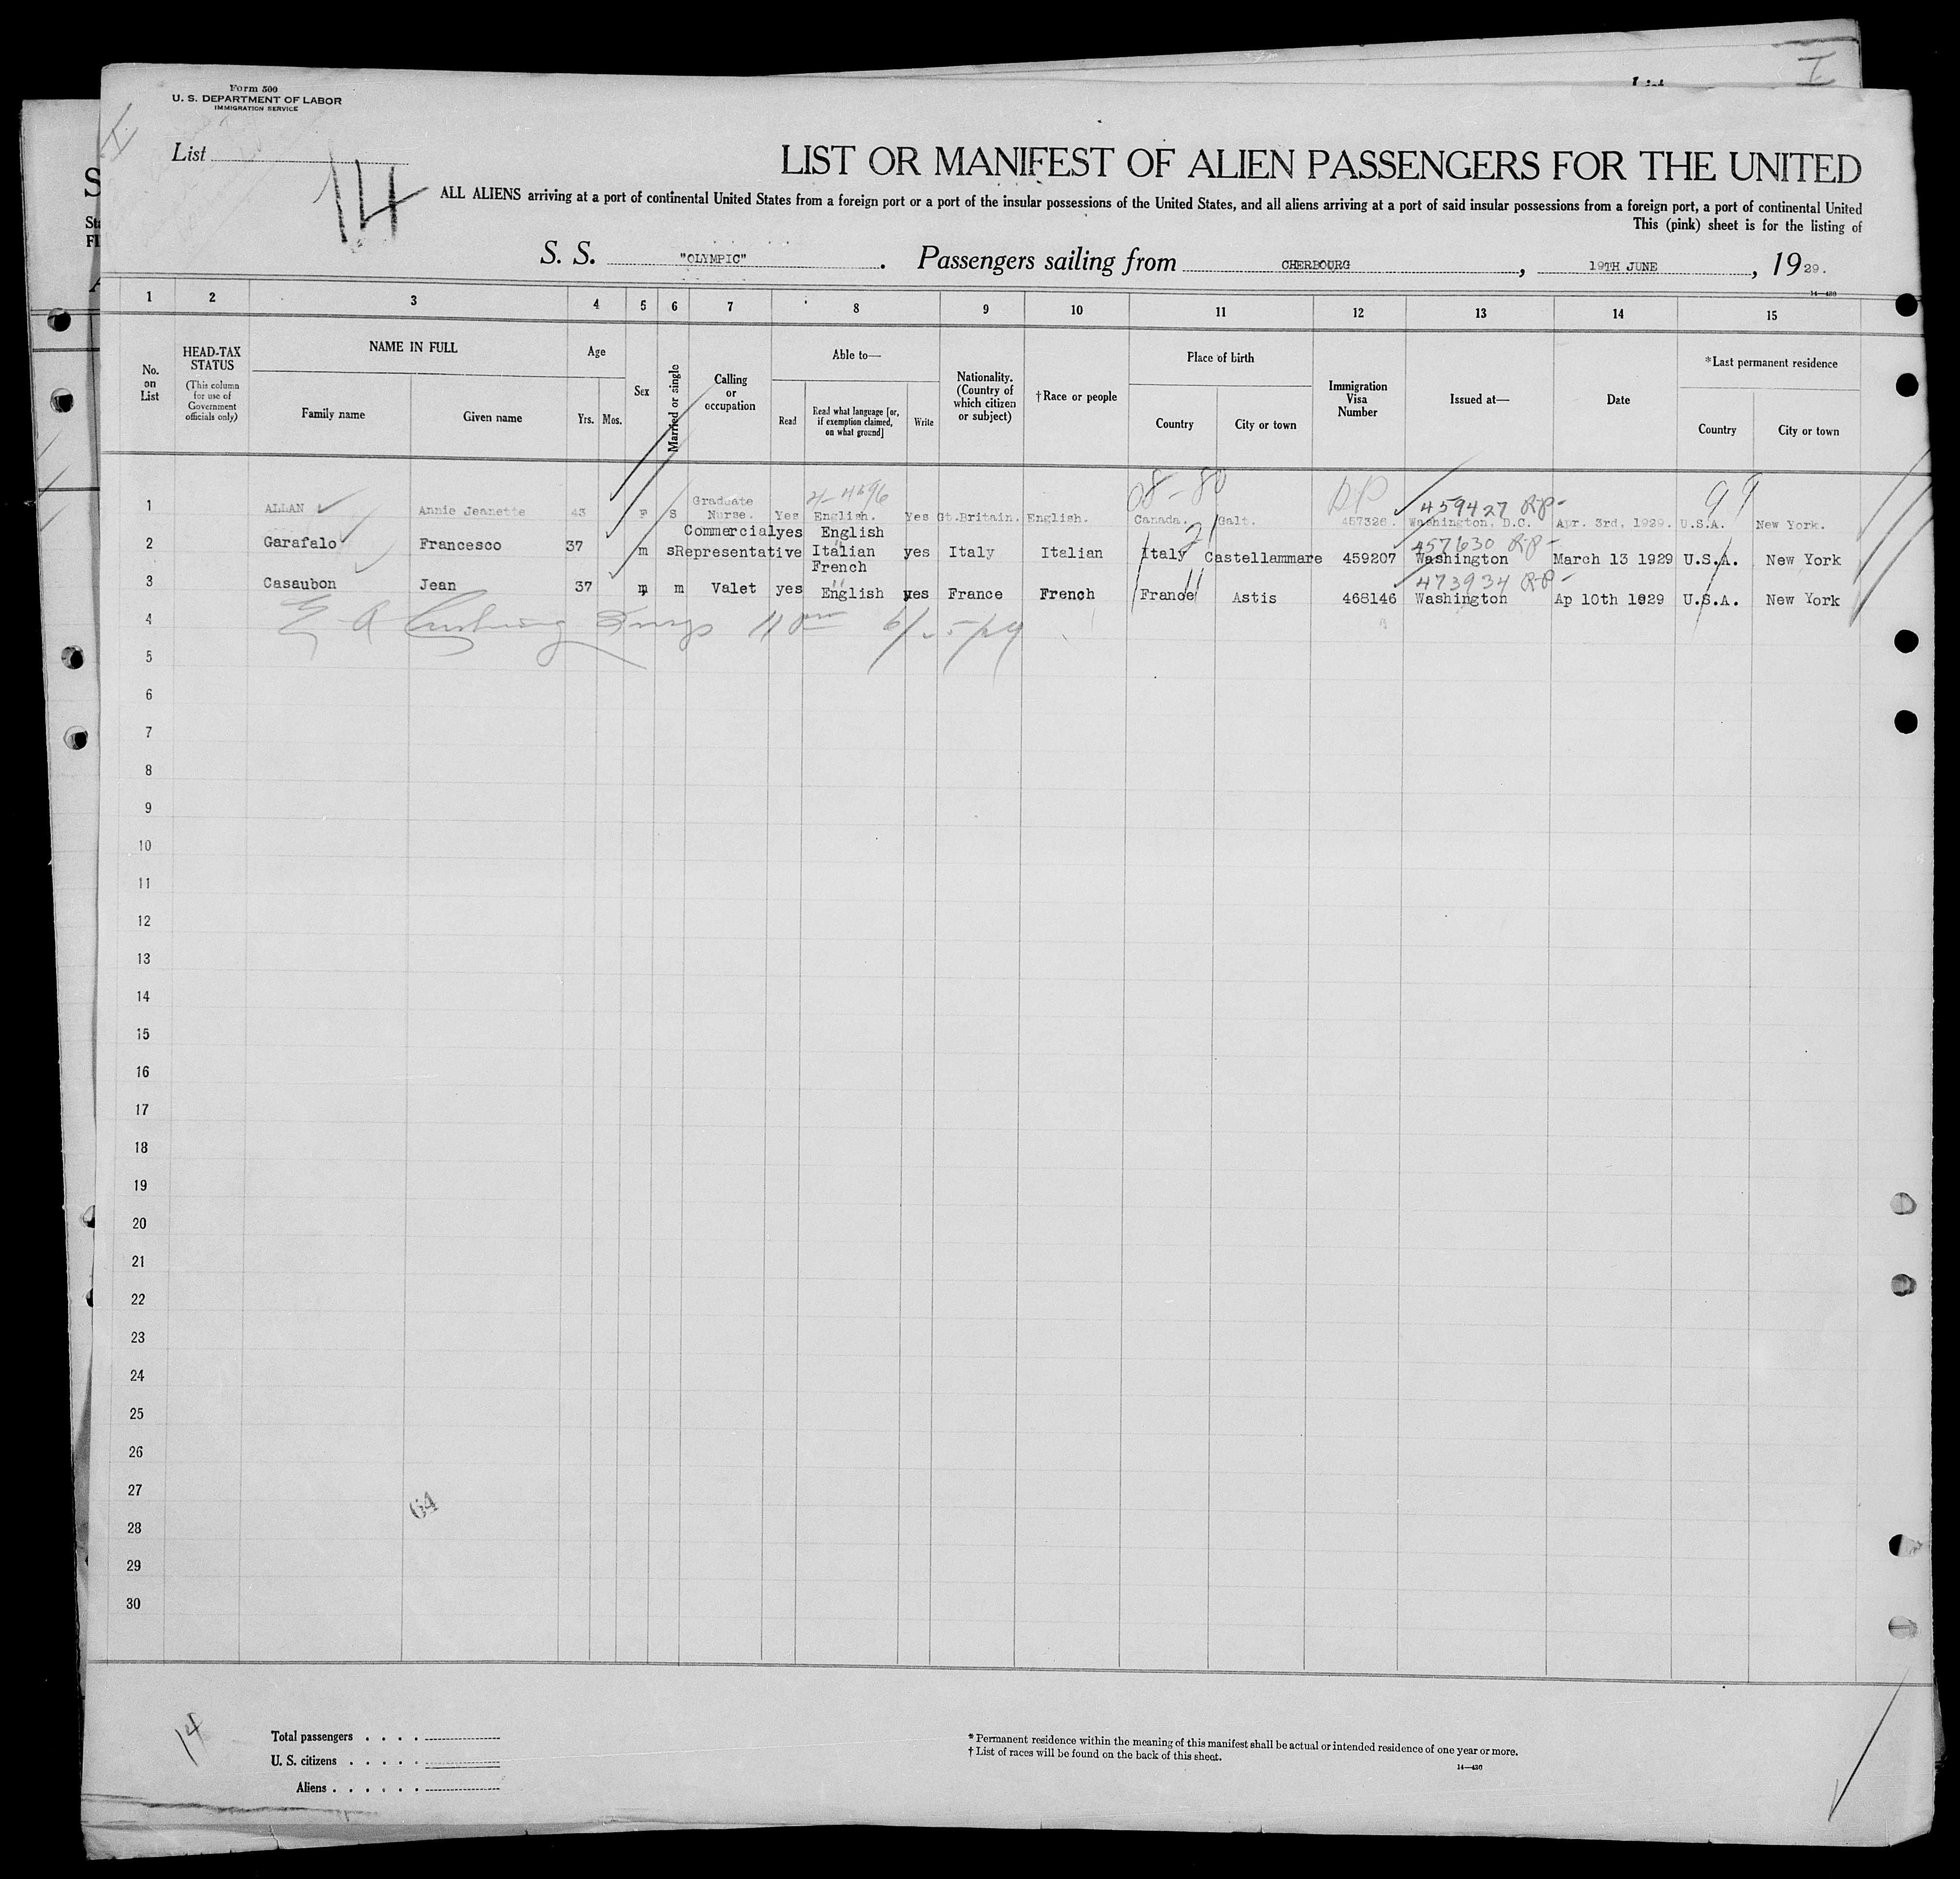 Form 500
U. S. DEPARTMENT OF LABOR
IMMIGRATION SERVICE
List
14
LIST OR MANIFEST OF ALIEN PASSENGERS FOR THE UNITED
ALL ALIENS arriving at a port of continental United States from a foreign port or a port of the insular possessions of the United States, and all aliens arriving at a port of said insular possessions from a foreign port, a port of continental United
This (pink) sheet is for the listing of
S. S. "OLYMPIC". Passengers sailing from CHERBOURG, 19TH JUNE, 1929.
14—430
1 2 3 4 5 6 7 8 9 10 11 12 13 14 15
No. on List
HEAD-TAX STATUS
(This column for use of Government officials only)
NAME IN FULL
Family name Given name
Age
Yrs. Mos.
Sex
Married or single
Calling or occupation
Able to—
Read
Read what language [or, if exemption claimed, on what ground]
Write
Nationality. (Country of which citizen or subject)
†Race or people
Place of birth
Country City or town
Immigration Visa Number
Issued at—
Date
*Last permanent residence
Country City or town
4-4596 08-80 459427 RP- 99
1 ALLAN Annie Jeanette 43 F S Graduate Nurse. Yes English. Yes Gt.Britain. English. Canada. Galt. 457326. Washington, D.C. Apr. 3rd, 1929. U.S.A. New York.
457630 RP-
2 Garafalo Francesco 37 m s Commercial Representative yes English Italian yes Italy Italian Italy Castellammare 459207 Washington March 13 1929 U.S.A. New York
473934 RP-
3 Casaubon Jean 37 m m Valet yes French English yes France French France Astis 468146 Washington Ap 10th 1929 U.S.A. New York
4
5
6
7
8
9
10
11
12
13
14
15
16
17
18
19
20
21
22
23
24
25
26
27
28
29
30
64
14
Total passengers . . . .
U. S. citizens . . . . .
Aliens . . . . . .
* Permanent residence within the meaning of this manifest shall be actual or intended residence of one year or more.
† List of races will be found on the back of this sheet.
14—430